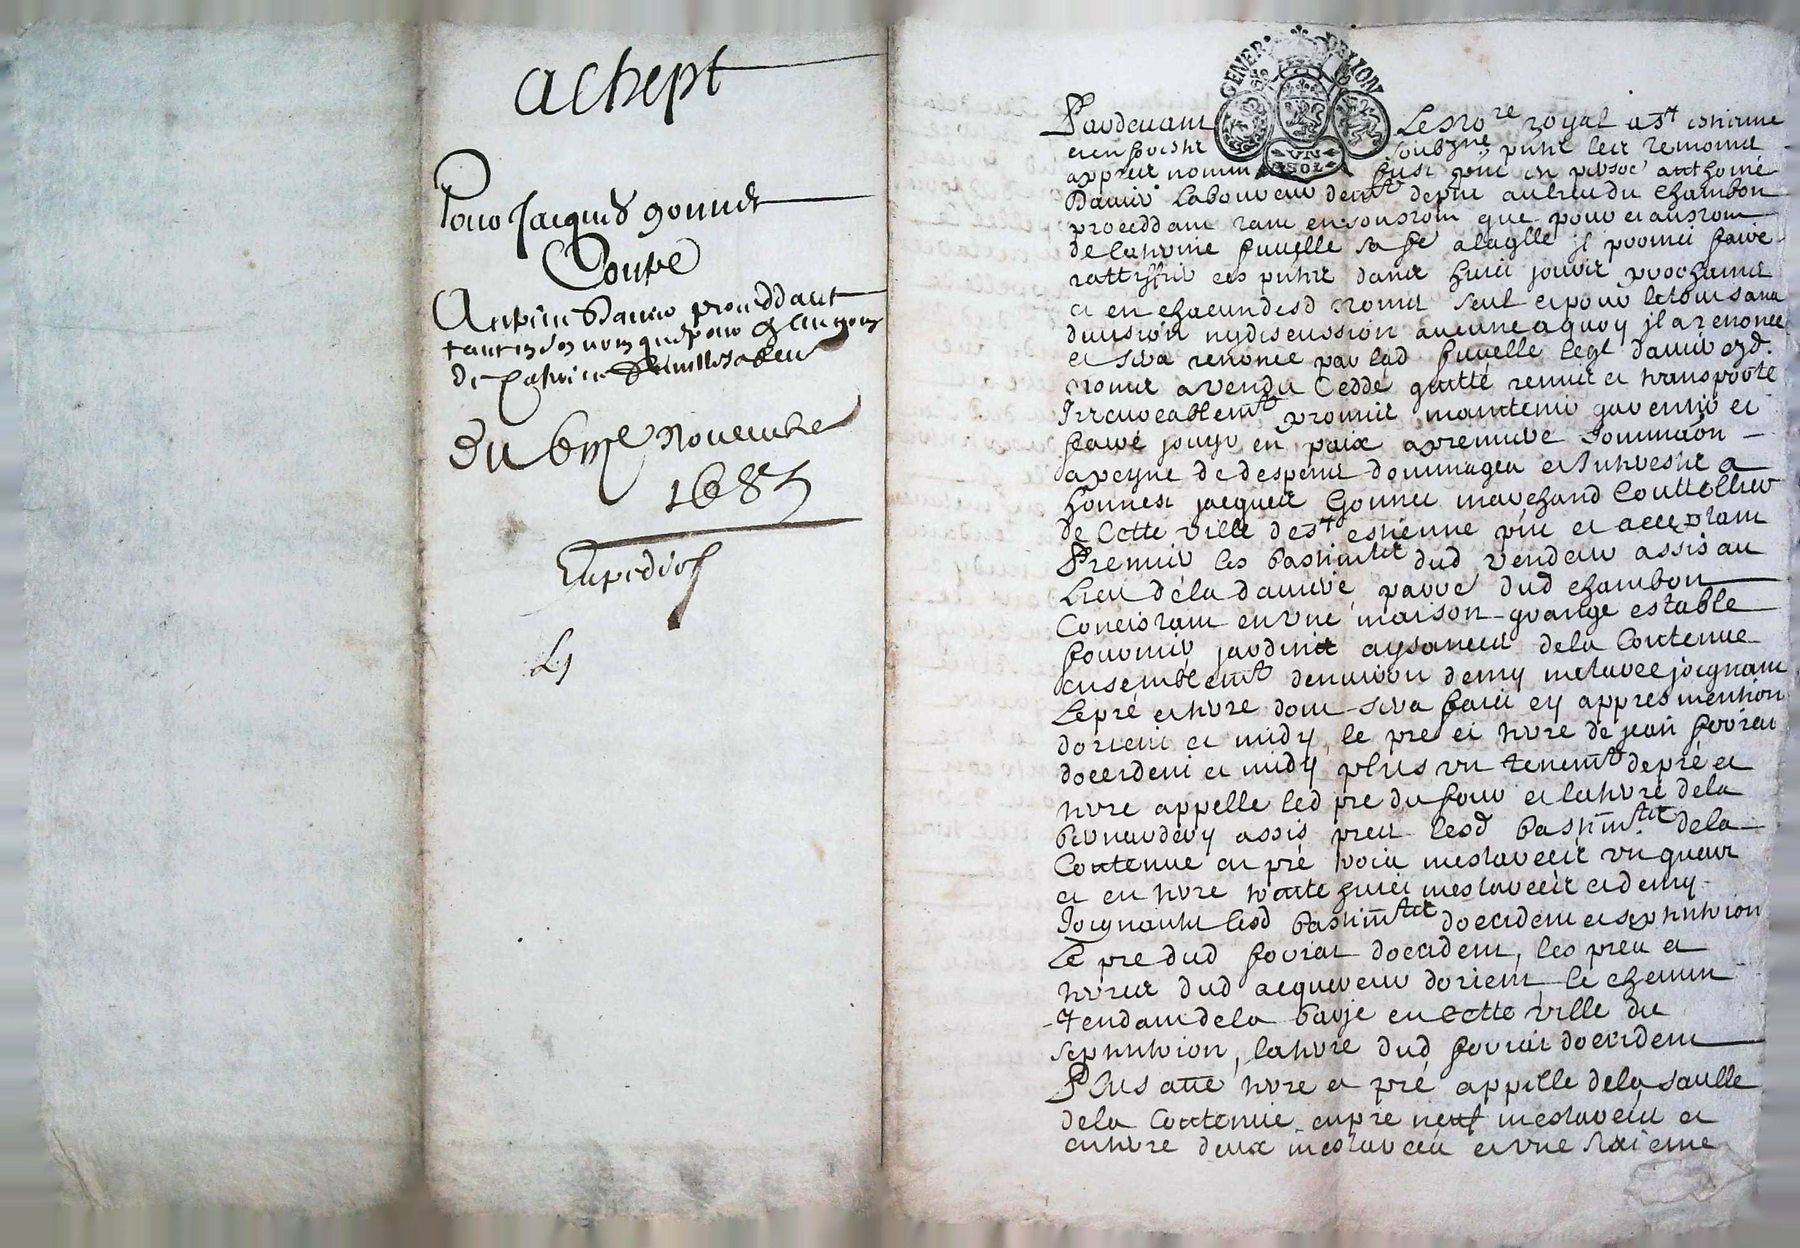 achept
Pour Jacques gonnet
Contre
Anthoine Damier proceddant
tant en son nom que pour et au nom
de Catherine
du 6me Novembre
1683
Expedié
GENER. DE LION
UN SOL
Pardevant Le No.re royal a St estienne
soub.ne puntz les tesmoins
appres nommes fust pnt en persoe anthoine
Damier laboureur demt depnt au lieu du chambon
proceddant tant en son nom que pour et au nom
de sa fe a laqlle il promet faire
rattiffier ces puntes dans huict jours prochains
et en chacun desd noms seul et pour le tout sans
division ny discussion aucune a quoy il a renoncé
et sera renoncé par lad leql damier esd.
noms a vendu Cedde quitté remis et transporté
Irrevocablemt promis maintenir garentir et
faire jouyr en paix a premiere sommaon
a peyne de despens dommages et Interestz a
honnest jacques Gonnet marchand Couttellier
de Cette ville de St estienne pnt et acceptant
Premier les bastimtz dud vendeur assis au
Lieu de la damiere parre dud chambon
Concistant en une maison grange estable
jardins aysances de la Contenue
ensemblemt denviron demy meteree joignant
le pré et terre dont sera faict cy appres mention
dorient et midy, le pre et terre de jean
doccident et midy plus un tenemt de pré et
terre appelle led pre du four et la terre de la
assis pres lesd bastimtz de la
Contenue en pré trois mesterees un quart
et en terre trente huict mesterees et demy
Joignants lesd bastimtz doccident et septentrion
Le pre dud doccident, les pres et
terres dud acquereur dorient, le chemin
Tendant de la en Cette ville du
septentrion, la terre dud doccident
Plus autre terre et pré appelle de la saulle
de la Contenue en pre neuf mesterees et
en terre deux mesterees et une sixieme